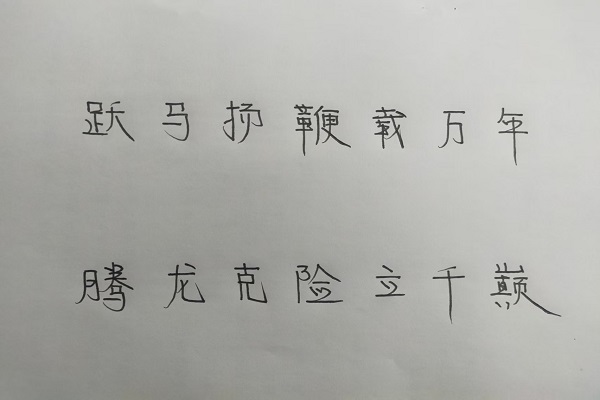 跃马扬鞭载万年
腾龙克险立千巅